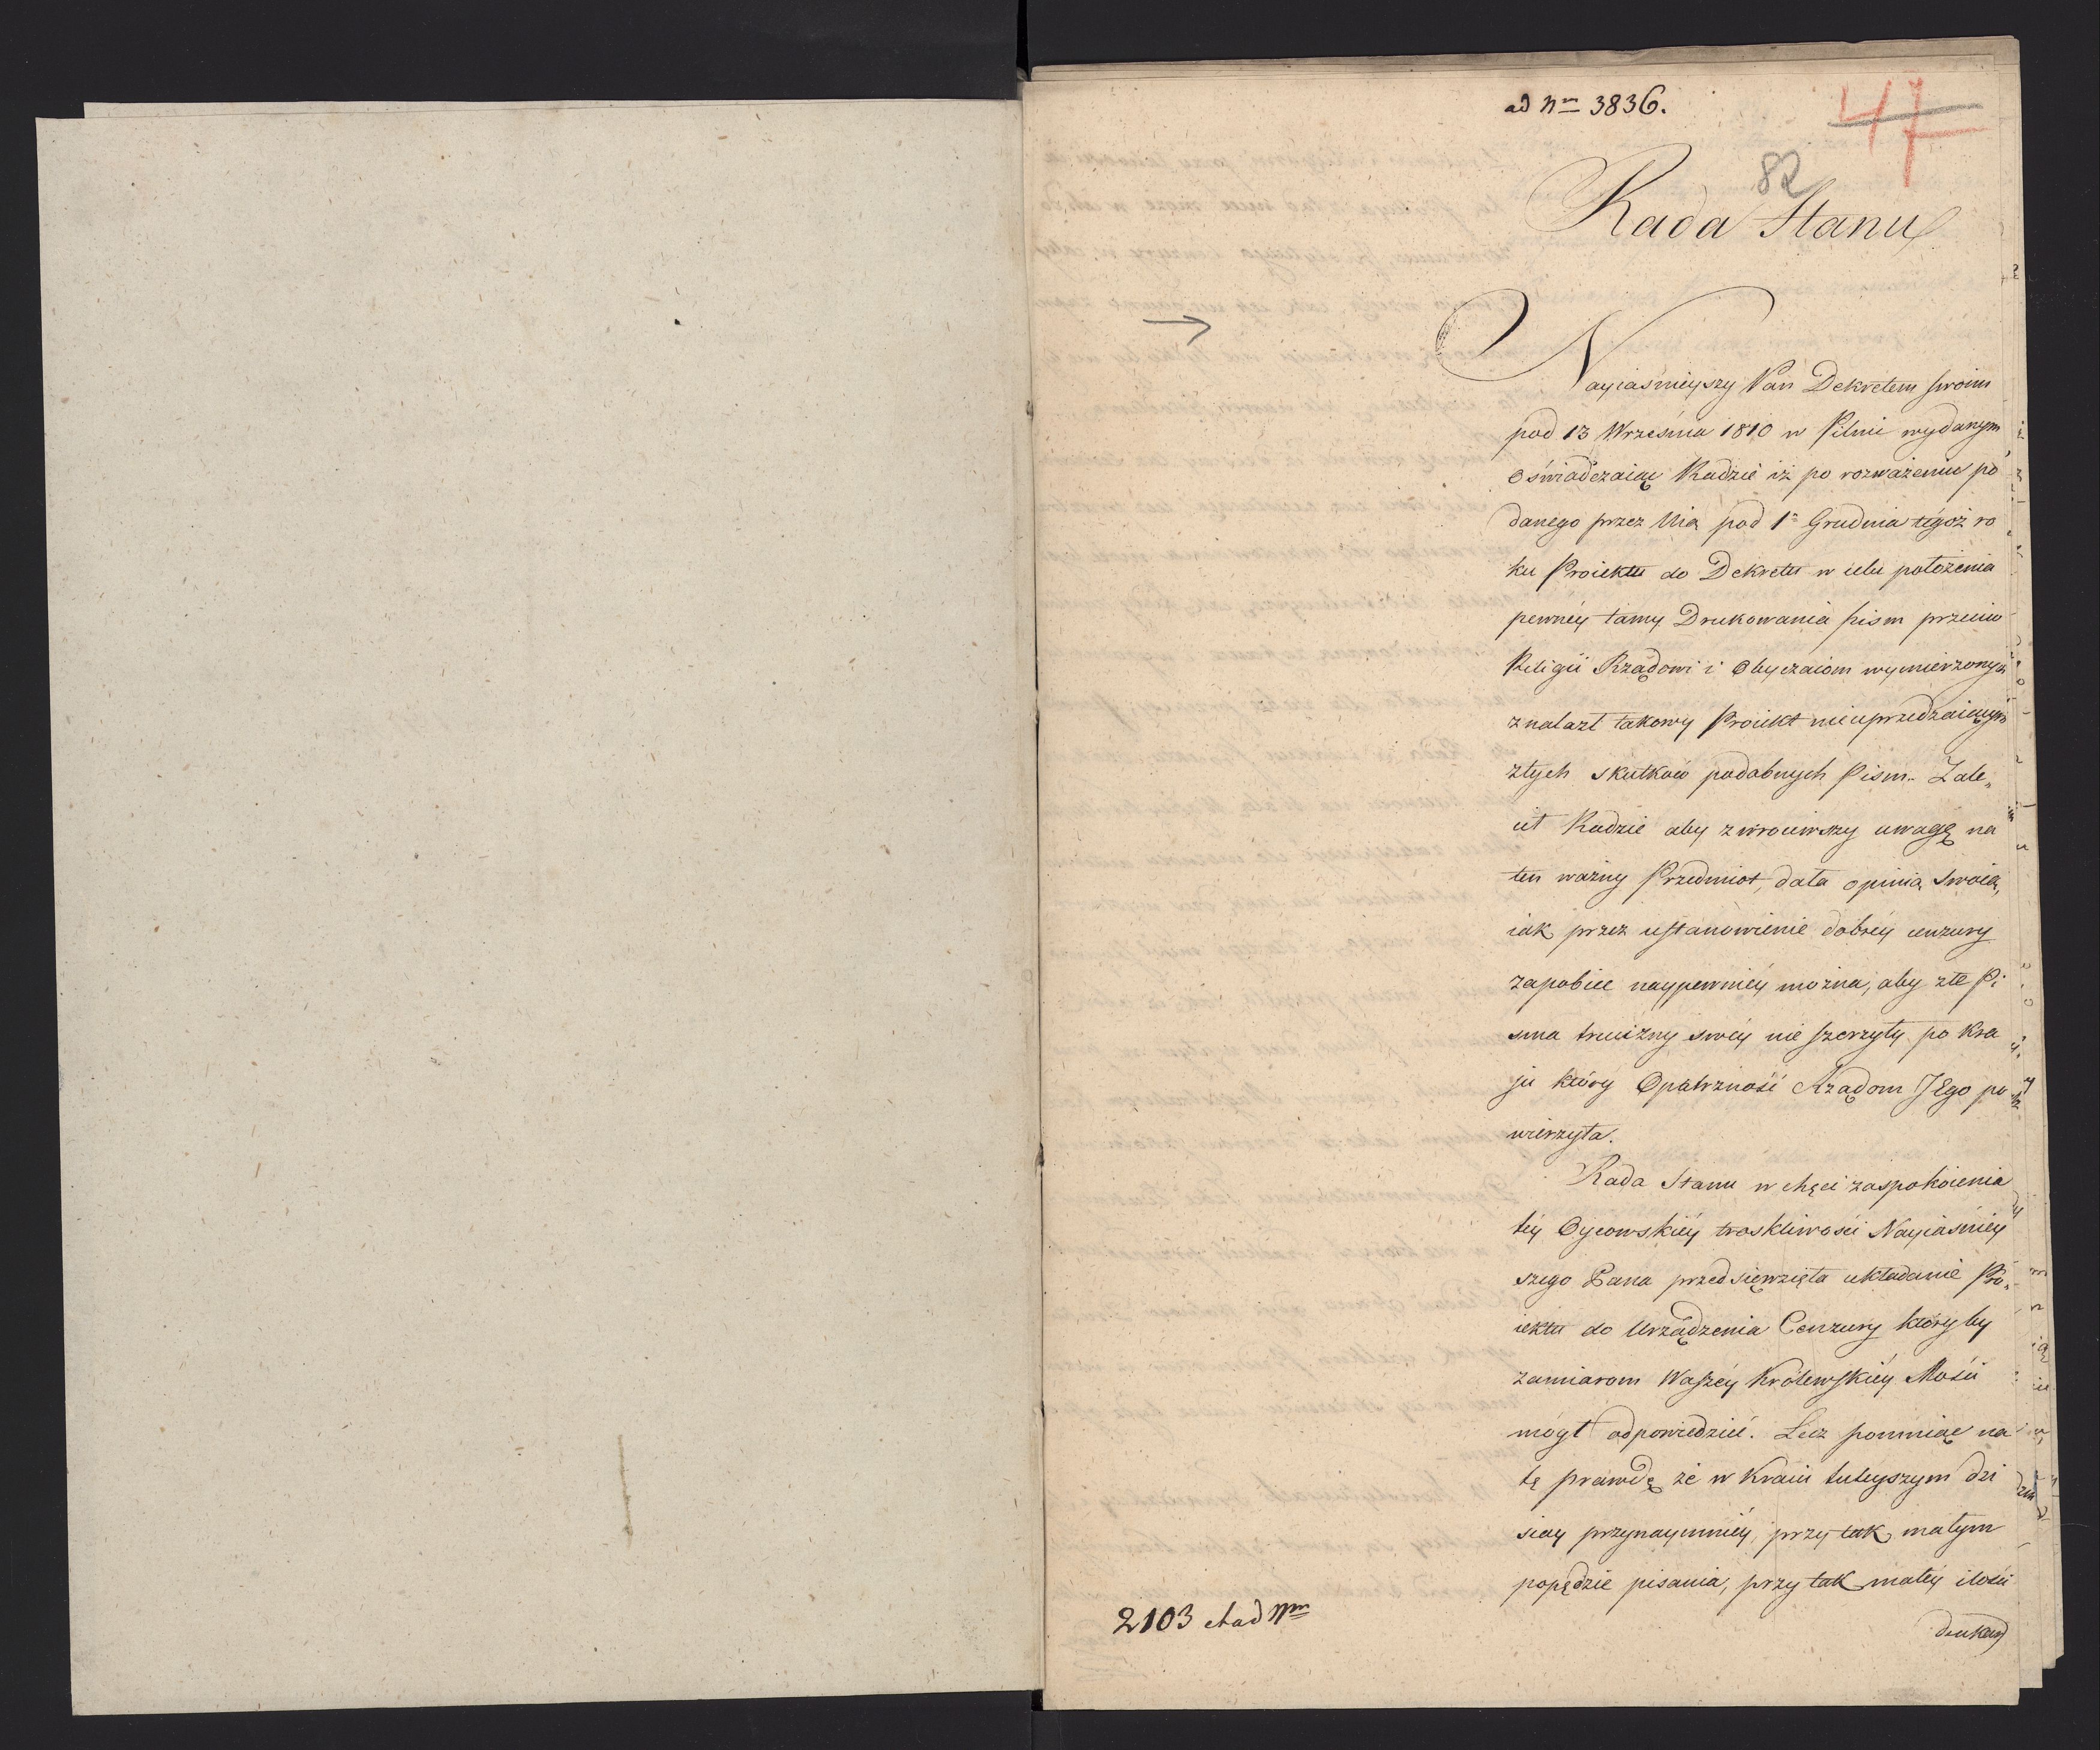 ad Nrm 3836.
47
82
Rada Stanu
Nayiaśnieyszy Pan Dekretem swoim
pod 13 Września 1810 w Pilnie wydanym,
oświadczaiąc Radzie iż po rozważeniu po
danego przez Nią pod 1m Grudnia tegoż ro
ku Proiektu do Dekretu w celu położenia
pewnéy tamy Drukowania pism przeciw
Religii Rządowi i Obyczaiom wymierzonych
znalazł takowy Proiekt nieuprzedzaiącym
złych skutków podobnych Pism. Zale„
cił Radzie aby zwrociwszy uwagę na
ten ważny Przedmiot, dała opinią swoią,
iak przez ustanowienie dobréy cenzury
zapobiec naypewniéy można, aby złe Pi
sma trucizny swéy nie szerzyły po Kra
ju który Opatrzność Rządom JEgo po
wierzyła.
Rada Stanu w chęci zaspokoienia
téy Oycowskiéy troskliwości Nayiaśniey
szego Pana przedsięwzięła układanie Pro„
iektu do Urządzenia Cenzury któryby
zamiarom Waszéy Królewskiéy Mości
mógł odpowiedzieć. Lecz pomniąc na
tę prawdę że w Kraiu tuteyszym dzi
siay przynaymniéy, przy tak małym
popędzie pisania, przy tak małéy ilości
drukarń
2103 et ad Nrm